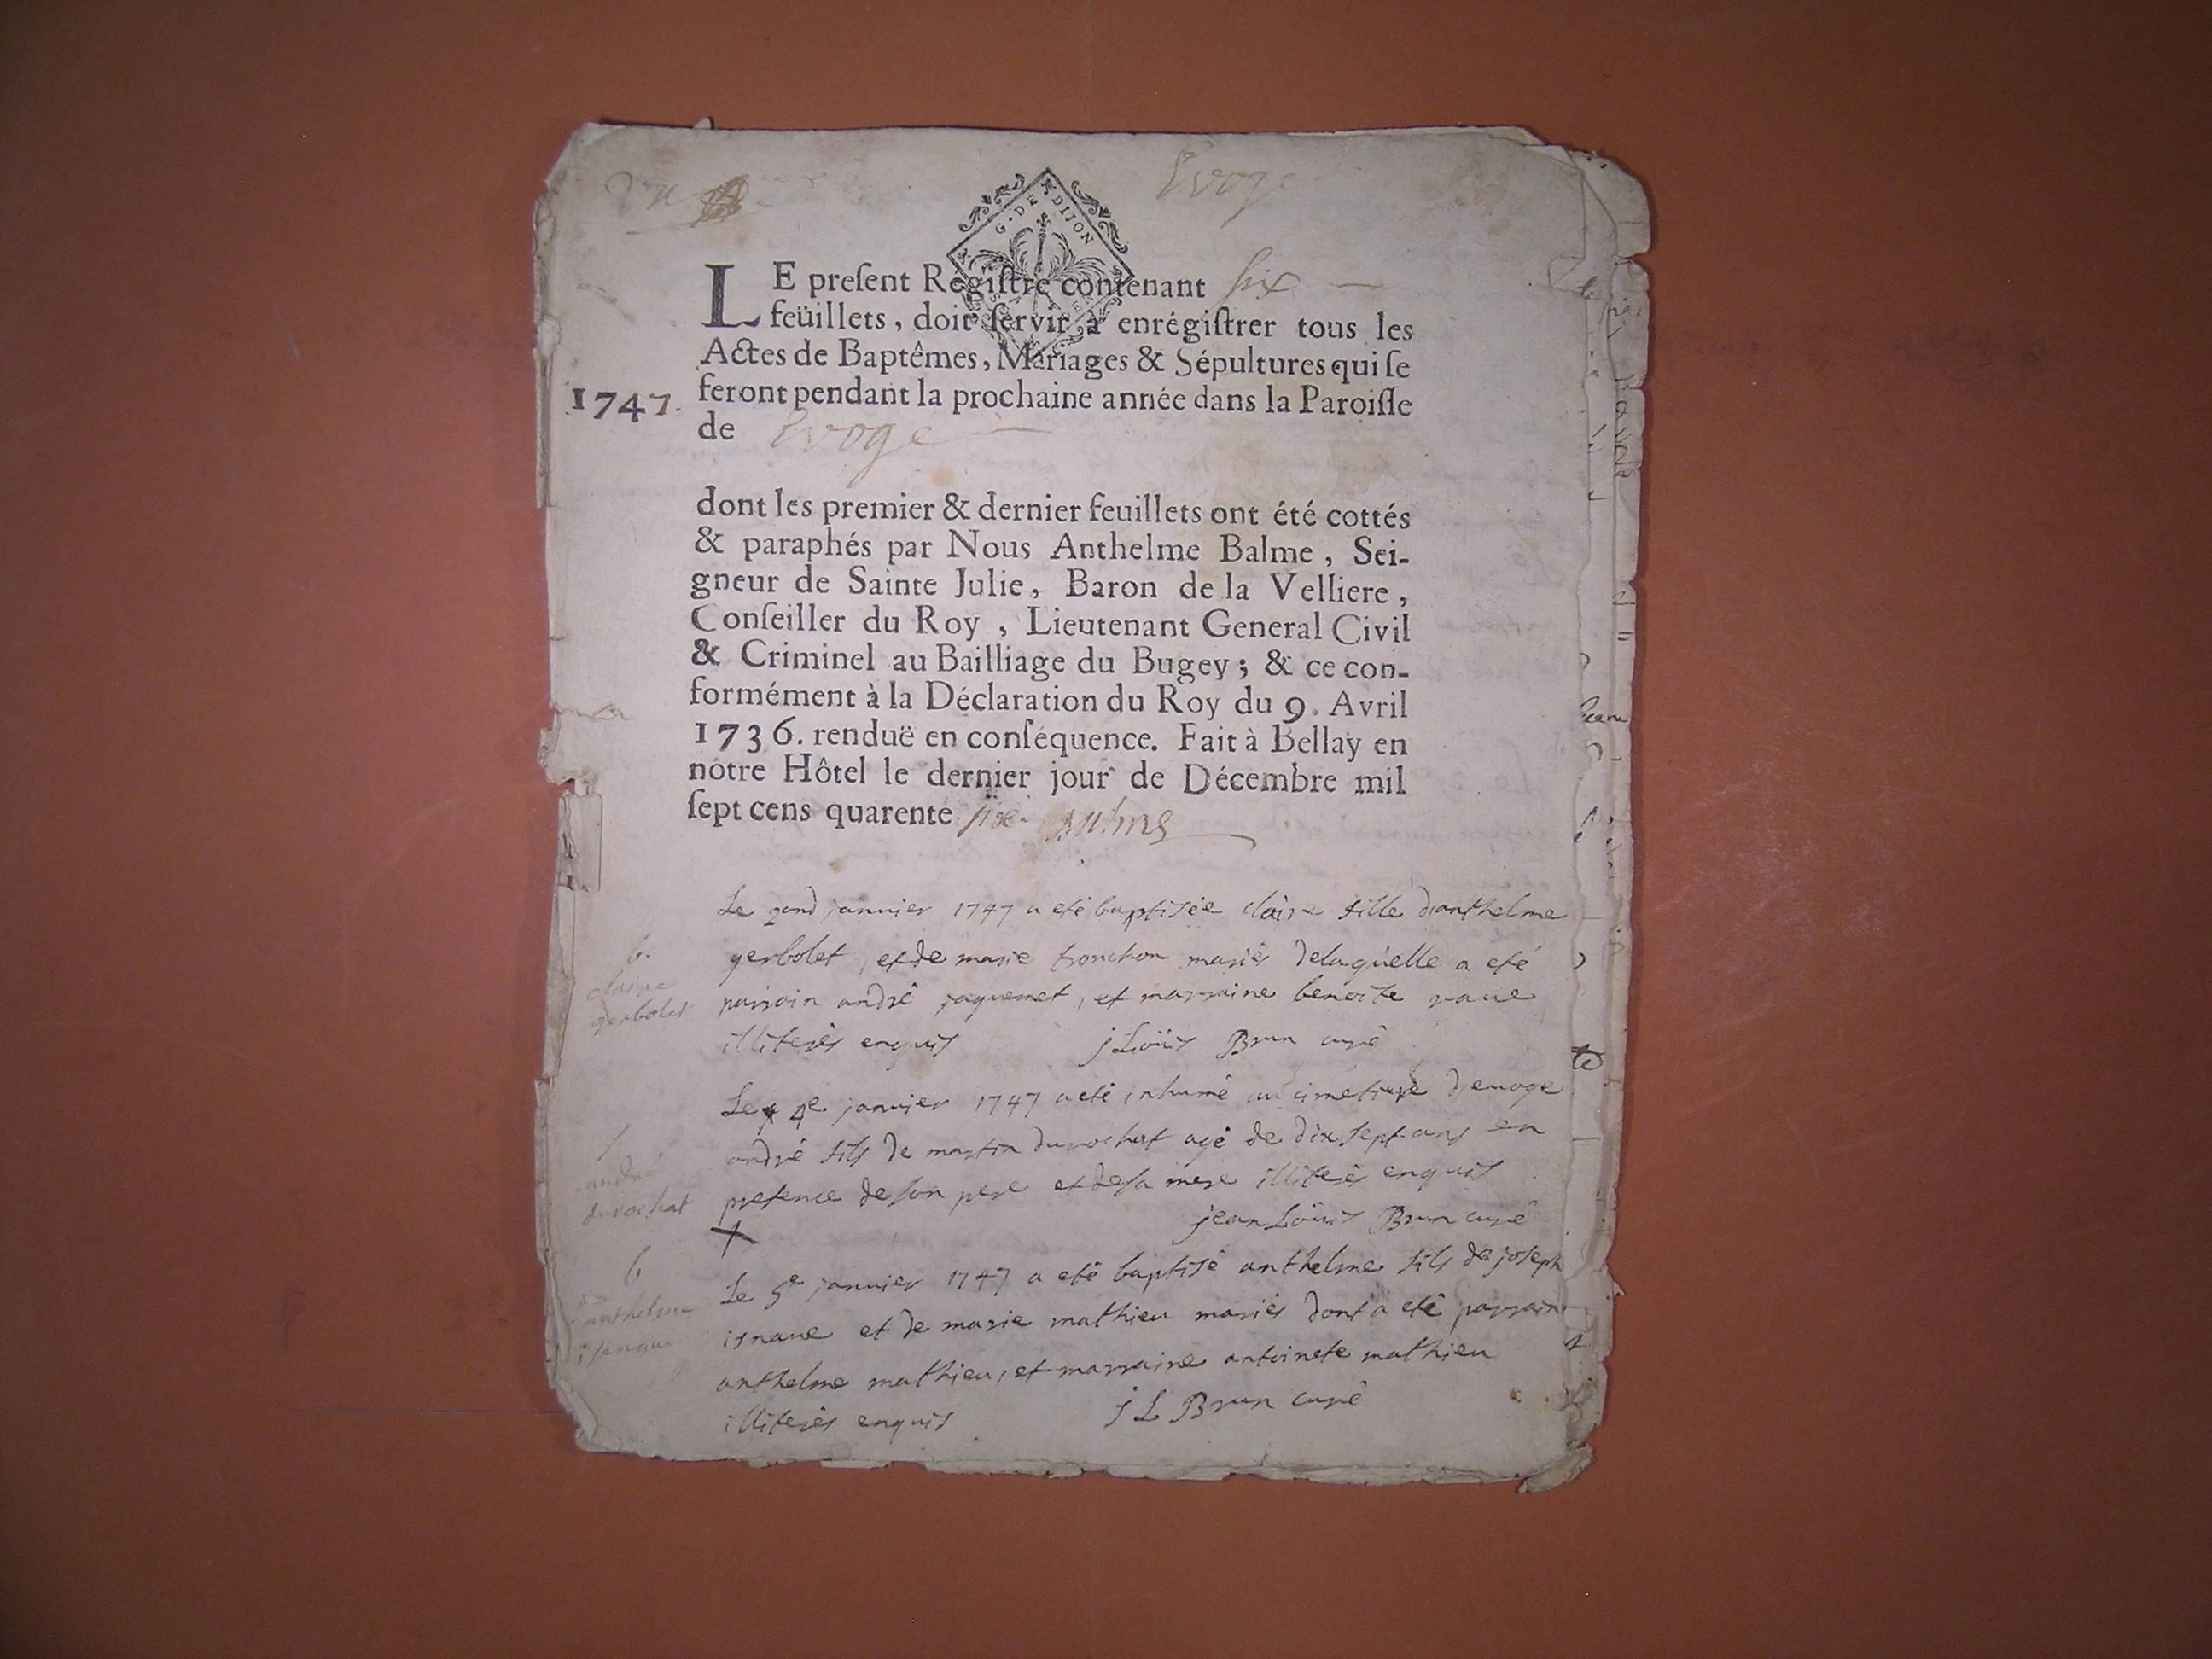 Evoge
G. DE DIJON
LE preſent Regiſtre contenant six
feüillets, doit ſervir à enrégiſtrer tous les
Actes de Baptêmes, Mariages & Sépultures qui ſe
1747. feront pendant la prochaine année dans la Paroiſſe
de Evoge
dont les premier & dernier feuillets ont été cottés
& paraphés par Nous Anthelme Balme, Sei-
gneur de Sainte Julie, Baron de la Velliere,
Conſeiller du Roy, Lieutenant General Civil
& Criminel au Bailliage du Bugey; & ce con-
formément à la Déclaration du Roy du 9. Avril
1736. renduë en conſéquence. Fait à Bellay en
nôtre Hôtel le dernier jour de Décembre mil
ſept cens quarente six. Balme
Le 2ond janvier 1747 a eté baptisée claire fille d'anthelme
gerbolet, et de marie tronchon mariés delaquelle a eté
parrain andré jaquemet, et marraine benoite
illiterés enquis jLoüis Brun curé
b.
claire
gerbolet
Le 4e janvier 1747 a eté inhumé au cimetiere devoge
andré fils de martin durochat agé de dix sept ans en
presence de son pere et de sa mere illiterés enquis
jean Loüis Brun curé
andré
durochat
Le 5e janvier 1747 a eté baptisé anthelme fils de joseph
isnaue et de marie mathieu mariés dont a eté parrain
anthelme mathieu, et marraine antoinete mathieu
illiterés enquis j L Brun curé
b
anthelme